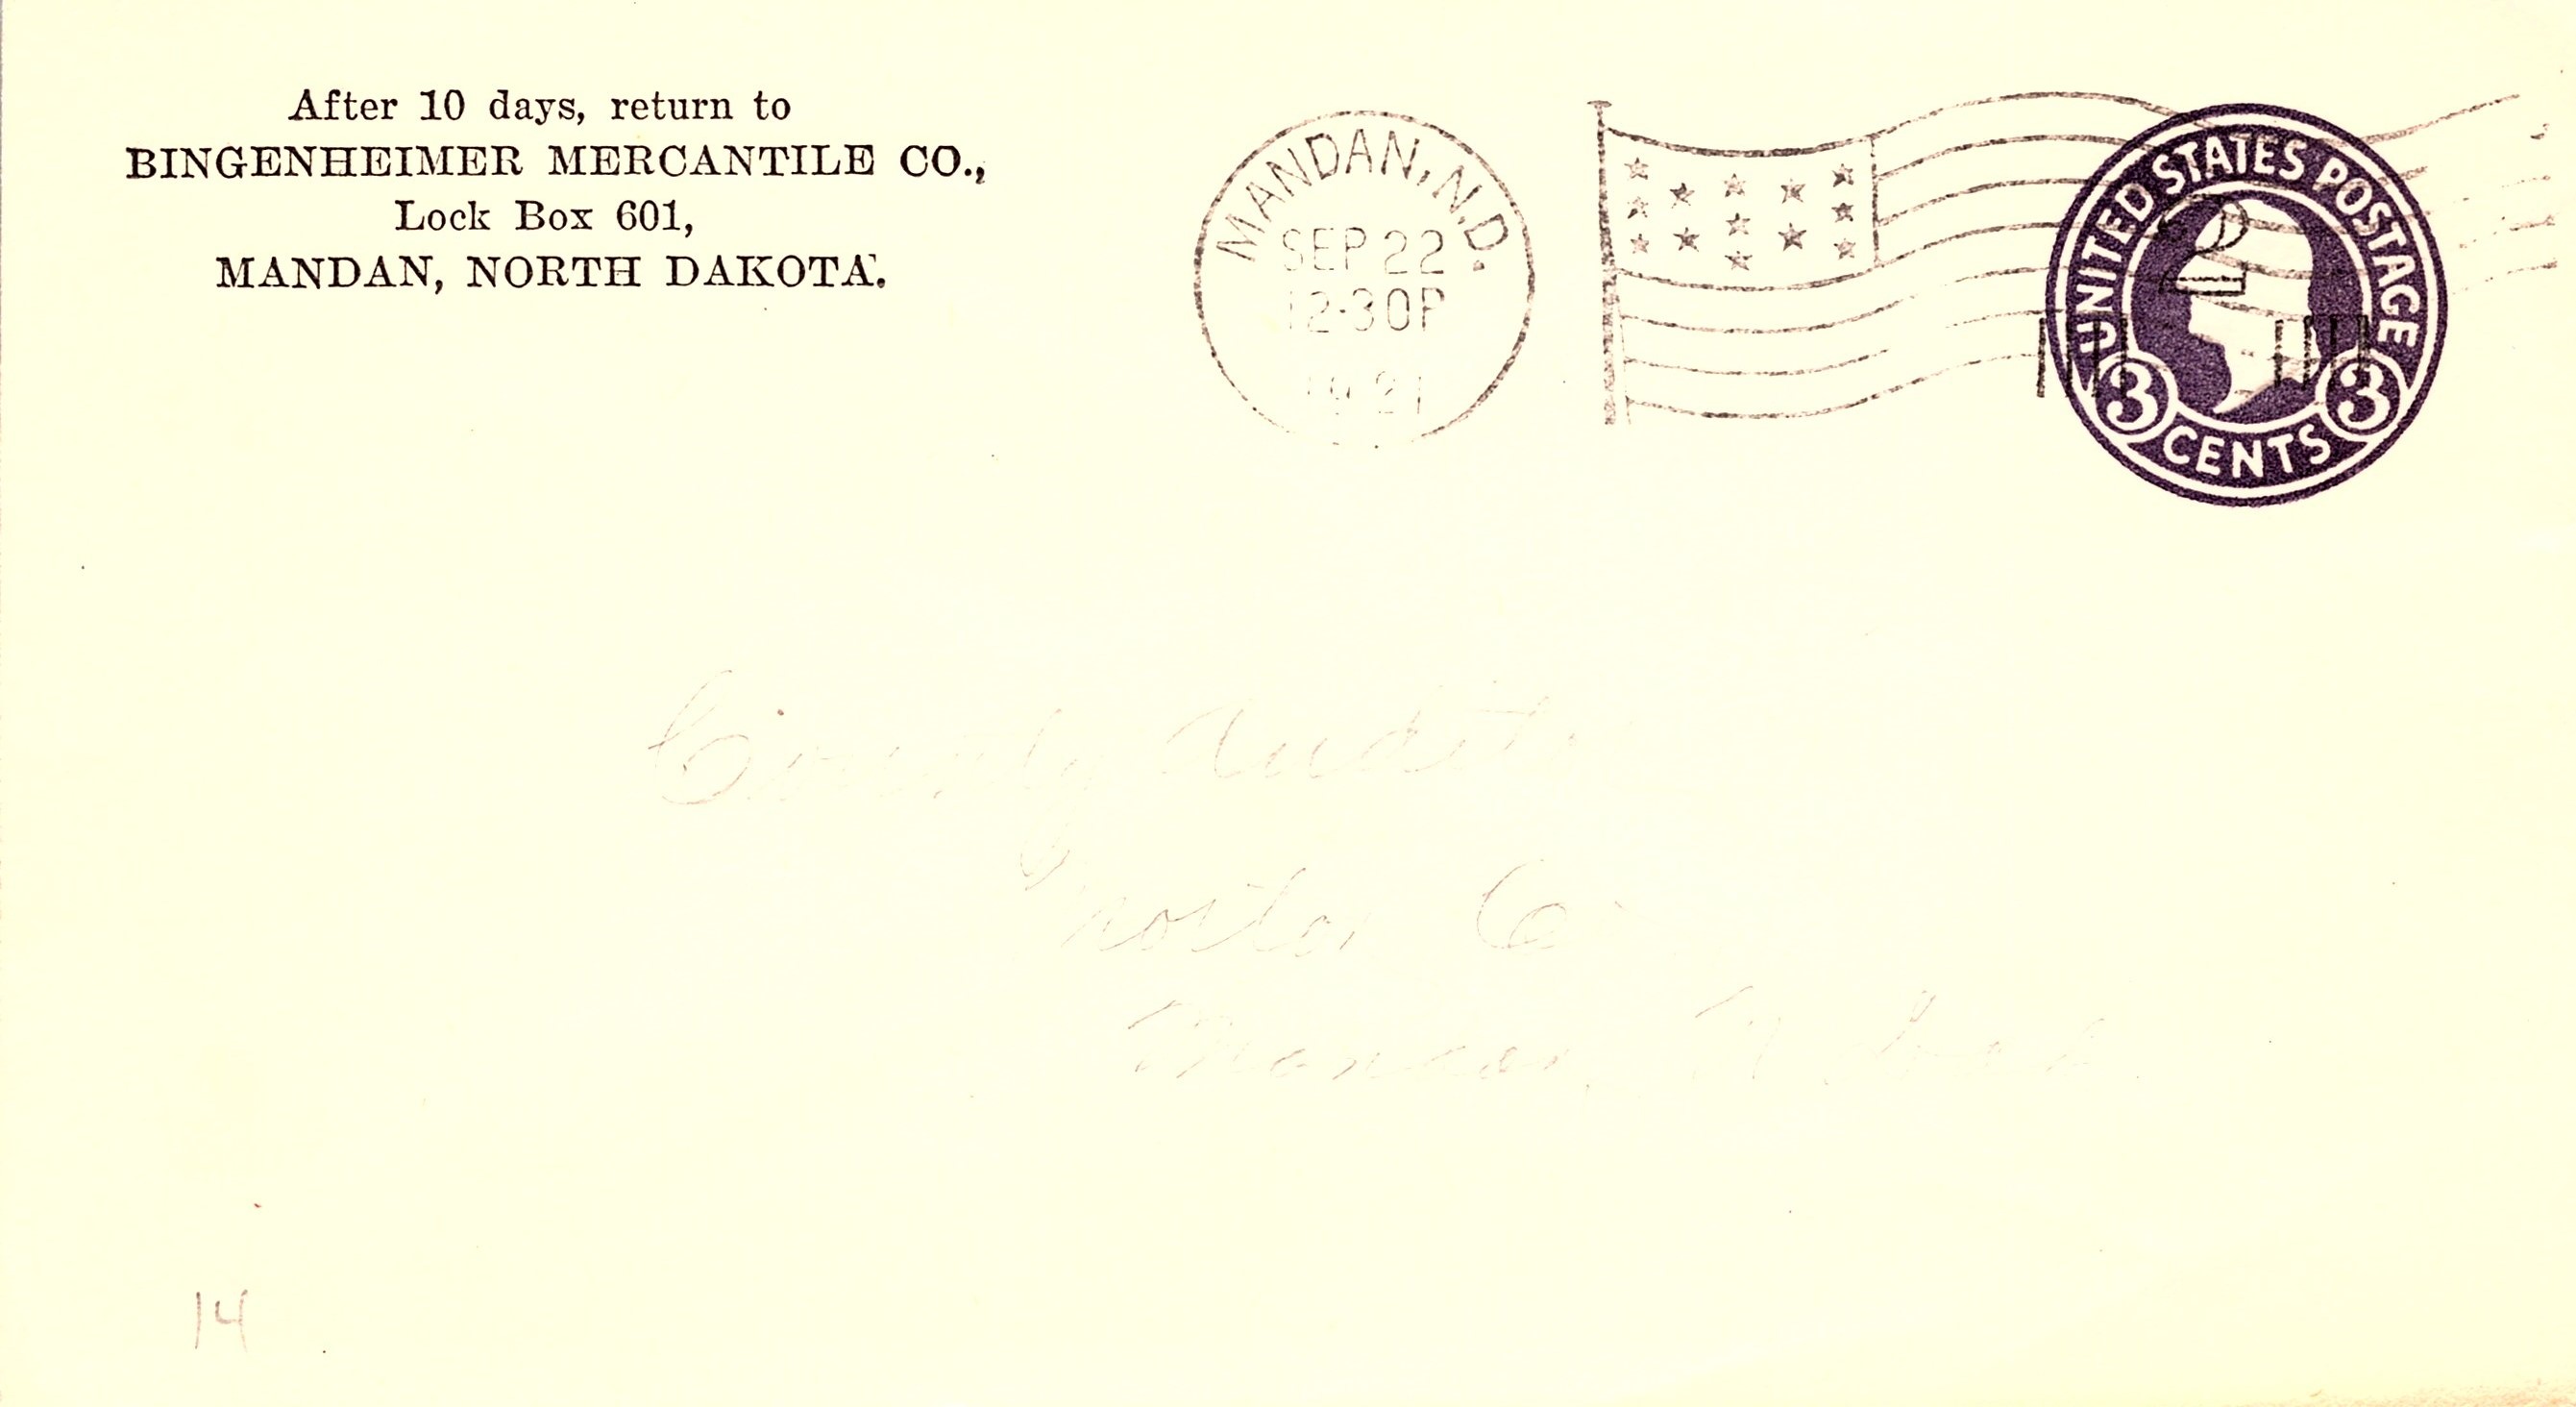 After 10 days, return to
BINGENHEIMER MERCANTILE CO.,
Lock Box 601,
MANDAN, NORTH DAKOTA.
MANDAN, N.D.
SEP 22
12-30P
1921
UNITED STATES POSTAGE
2
3 CENTS 3
County Auditor
Morton Co
Mandan N Dak
14